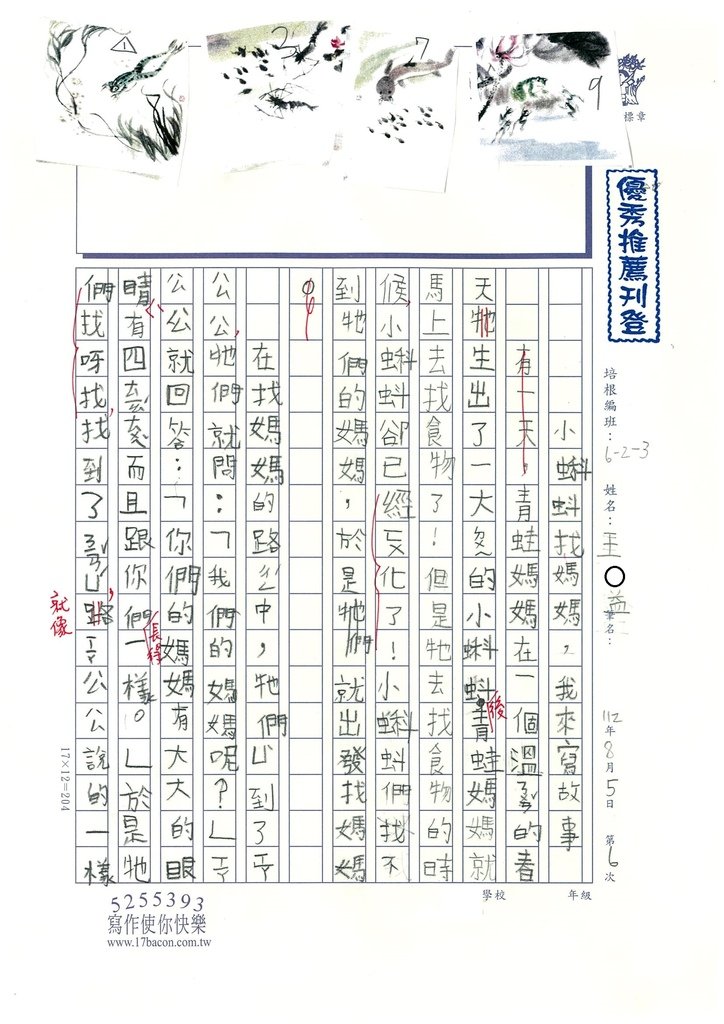 標章
優秀推薦刊登
培根編班：6-2-3
姓名：王○益
筆名：
112年8月5日 第6次
1
2
7
9
小蝌蚪找媽媽，我來寫故事
有一天，青蛙媽媽在一個溫的春
天牠生出了一大的小蝌蚪青蛙媽媽就
後
馬上去找食物了！但是牠去找食物的時
候，小蝌蚪卻已經化了！小蝌蚪們找不
到牠們的媽媽，於是牠們就出發找媽媽
在找媽媽的路中，牠們ㄩˋ到了ㄒㄧㄚ
公公，牠們就問：「我們的媽媽呢？」ㄒㄧㄚ
公公就回答：「你們的媽媽有大大的眼
睛，有四而且跟你們一樣。」於是牠
長得
們找呀找，找到了，跟ㄒㄧㄚ公公說的一樣
就像
17×12=204
學校 年級
5255393
寫作使你快樂
www.17bacon.com.tw